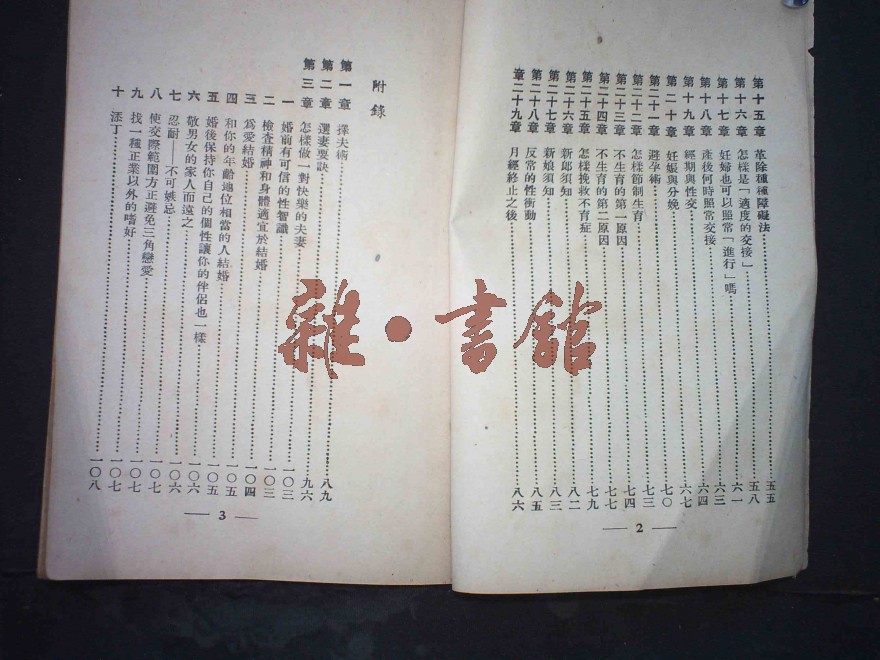 第十五章 革除種種障礙法……五五
第十六章 怎樣是「適度的交接」……五八
第十七章 妊婦也可以照常「進行」嗎……六一
第十八章 產後何時照常交接……六三
第十九章 經期與性交……六四
第二十章 妊娠與分娩……六七
第二十一章 避孕術……七〇
第二十二章 怎樣節制生育……七三
第二十三章 不生育的第一原因……七四
第二十四章 不生育的第二原因……七七
第二十五章 怎樣挽救不育症……七九
第二十六章 新郎須知……八二
第二十七章 新娘須知……八三
第二十八章 反常的性衝動……八五
章二十九章 月經終止之後……八六
— 2 —
附錄
第一章 擇夫術……八九
第二章 選妻要訣……九六
第三章 怎樣做一對快樂的夫妻……一〇三
一 婚前有可信的性智識……一〇三
二 檢查精神和身體適宜於結婚……一〇四
三 爲愛結婚……一〇五
四 和你的年齡地位相當的人結婚……一〇五
五 婚後保持你自己的個性讓你的伴侶也一樣……一〇六
六 敬男女的家人而遠之……一〇六
七 忍耐——不可嫉忌……一〇七
八 使交際範圍方正避免三角戀愛……一〇七
九 找一種正業以外的嗜好……一〇七
十 添丁……一〇八
— 3 —
雜·書館